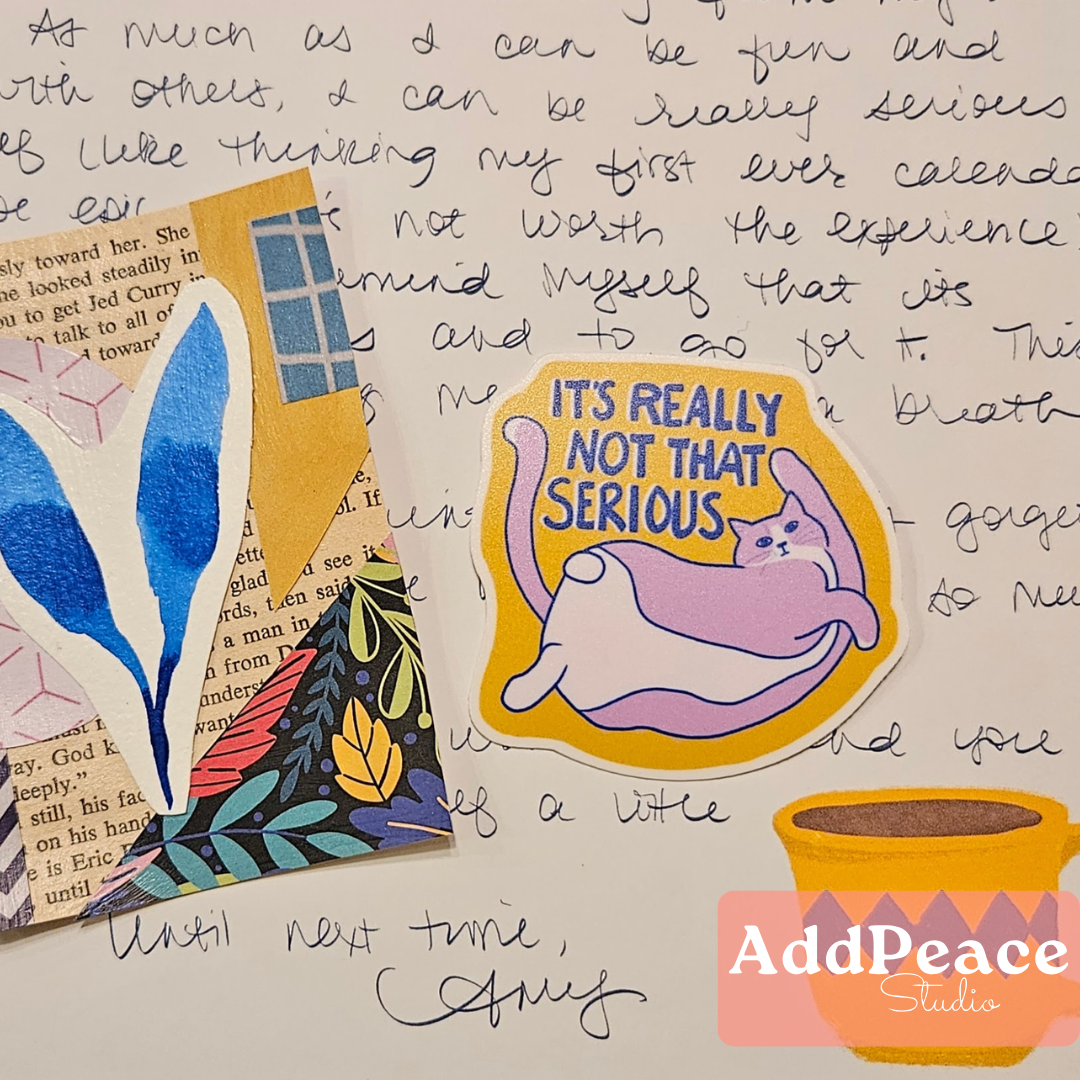 As much as I can be fun and
with others, I can be really serious
like thinking my first ever calenda
be epic not worth the experience
remind myself that its
and to go for it. This
me a breath
gorge
so mu
and you
a little
Until next time,
Amy
IT'S REALLY
NOT THAT
SERIOUS
sly toward her. She
he looked steadily in
ou to get Jed Curry in
to talk to all of
toward
ol. If
glad see it
rds, then said
a man in
from D
underst
want
ay. God k
deeply."
still, his fac
on his hand
e is Eric
until
AddPeace
Studio